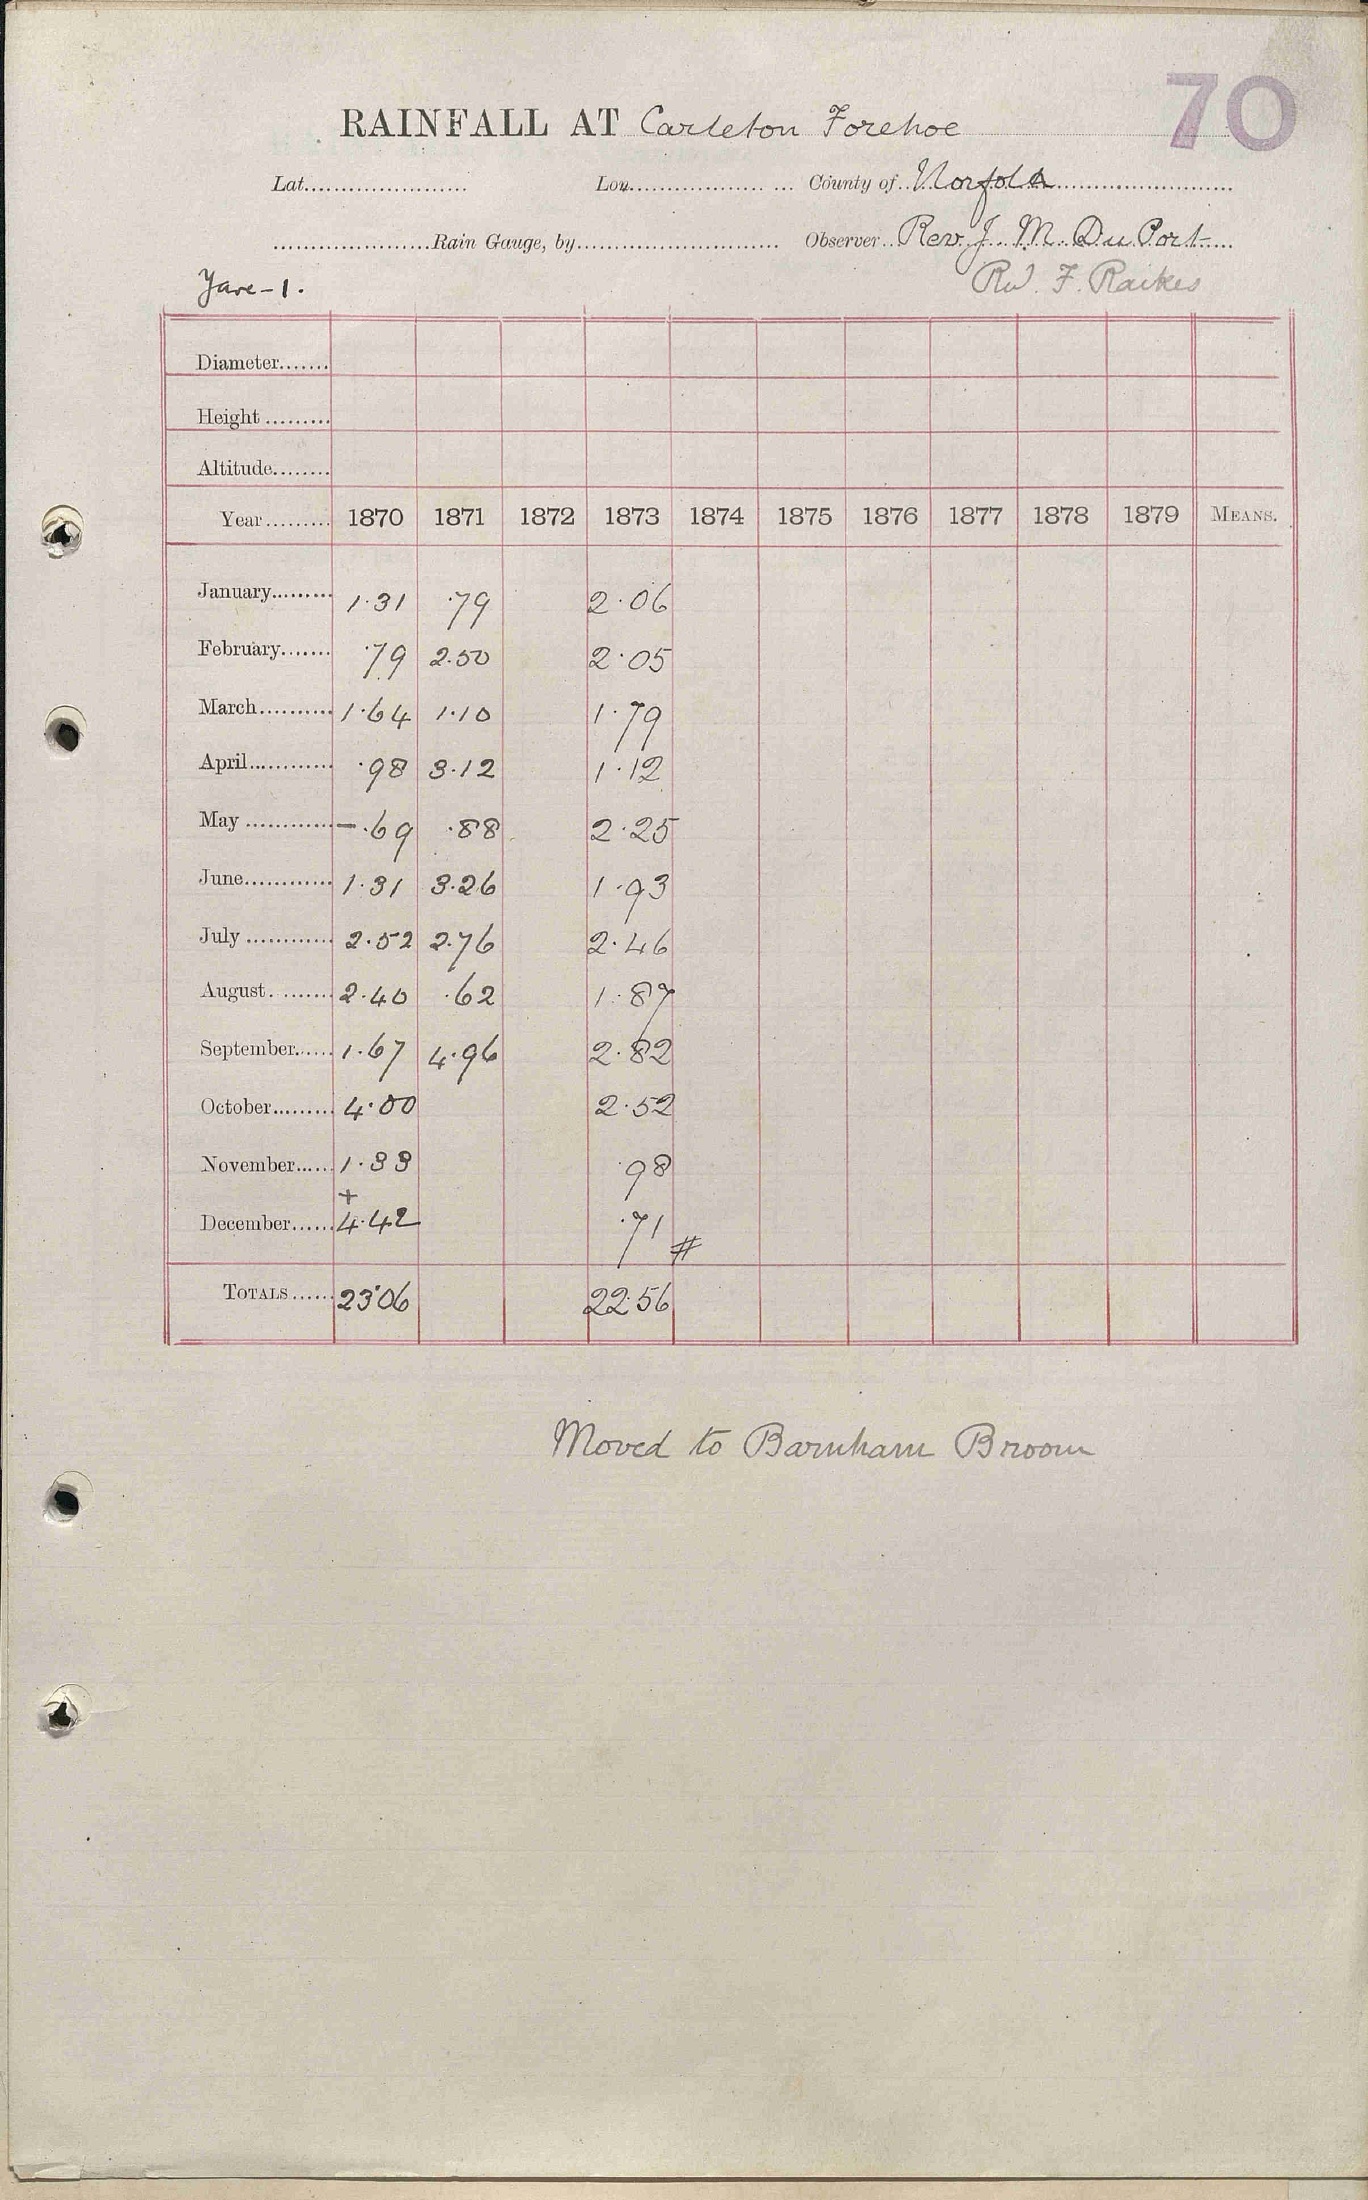 70
RAINFALL AT Carleton Forehoe
Lat...................... Lon.................. ... County of..Norfolk........................
.....................Rain Gauge, by........................... Observer..Rev. J. M. Du Port....
Yare-1. Rev. F. Raikes
Diameter.......
Height.........
Altitude........
Year......... 1870 1871 1872 1873 1874 1875 1876 1877 1878 1879 MEANS.
January......... 1.31 .79 2.06
February....... .79 2.50 2.05
March.......... 1.64 1.10 1.79
April............ .98 3.12 1.12
May ............ - .69 .88 2.25
June............ 1.31 3.26 1.93
July ............ 2.52 2.76 2.46
August. ....... 2.40 .62 1.87
September...... 1.67 4.96 2.82
October......... 4.00 2.52
November...... 1.33 .98
+
December...... 4.42 .71 #
TOTALS...... 23.06 22.56
Moved to Barnham Broom